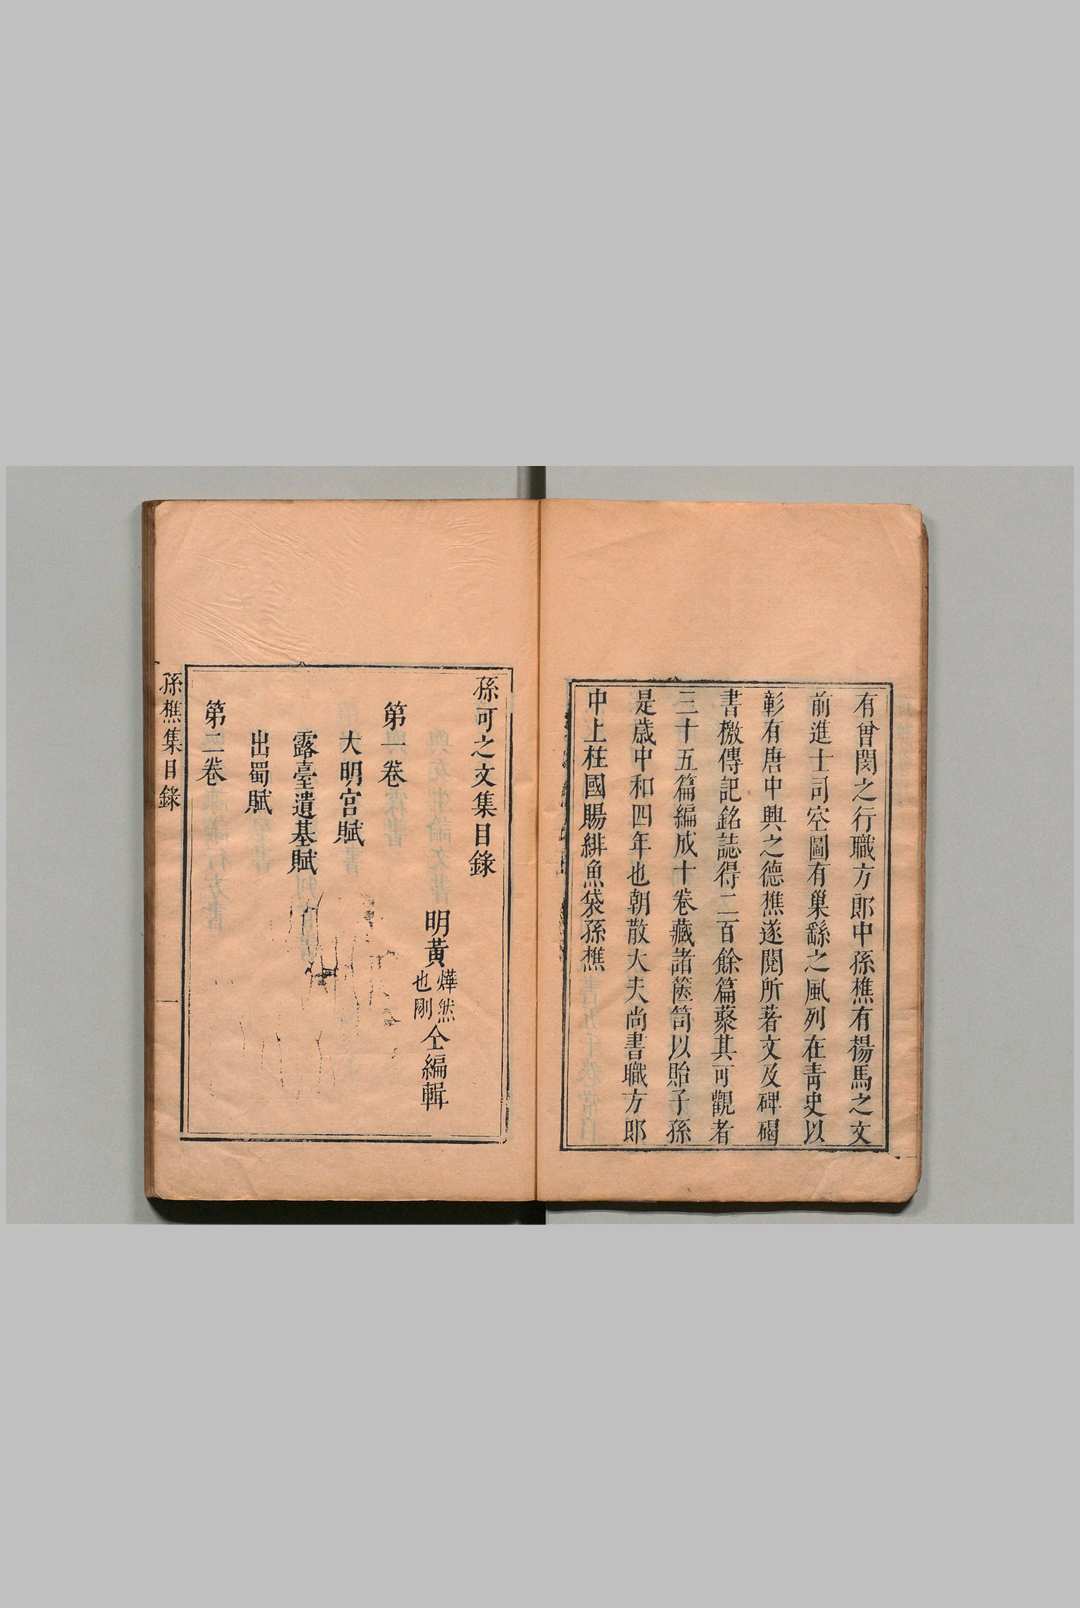 有曾閔之行職方郎中孫樵有揚馬之文
前進士司空圖有巢繇之風列在青史以
彰有唐中興之德樵遂閱所著文及碑碣
書檄傳記銘誌得二百餘篇蘂其可觀者
三十五篇編成十卷藏諸篋笥以貽子孫
是歲中和四年也朝散大夫尚書職方郎
中上柱國賜緋魚袋孫樵
孫可之文集目錄
明黃燁然也剛仝編輯
第一卷
大明宮賦
露臺遺基賦
出蜀賦
第二卷
孫樵集目錄